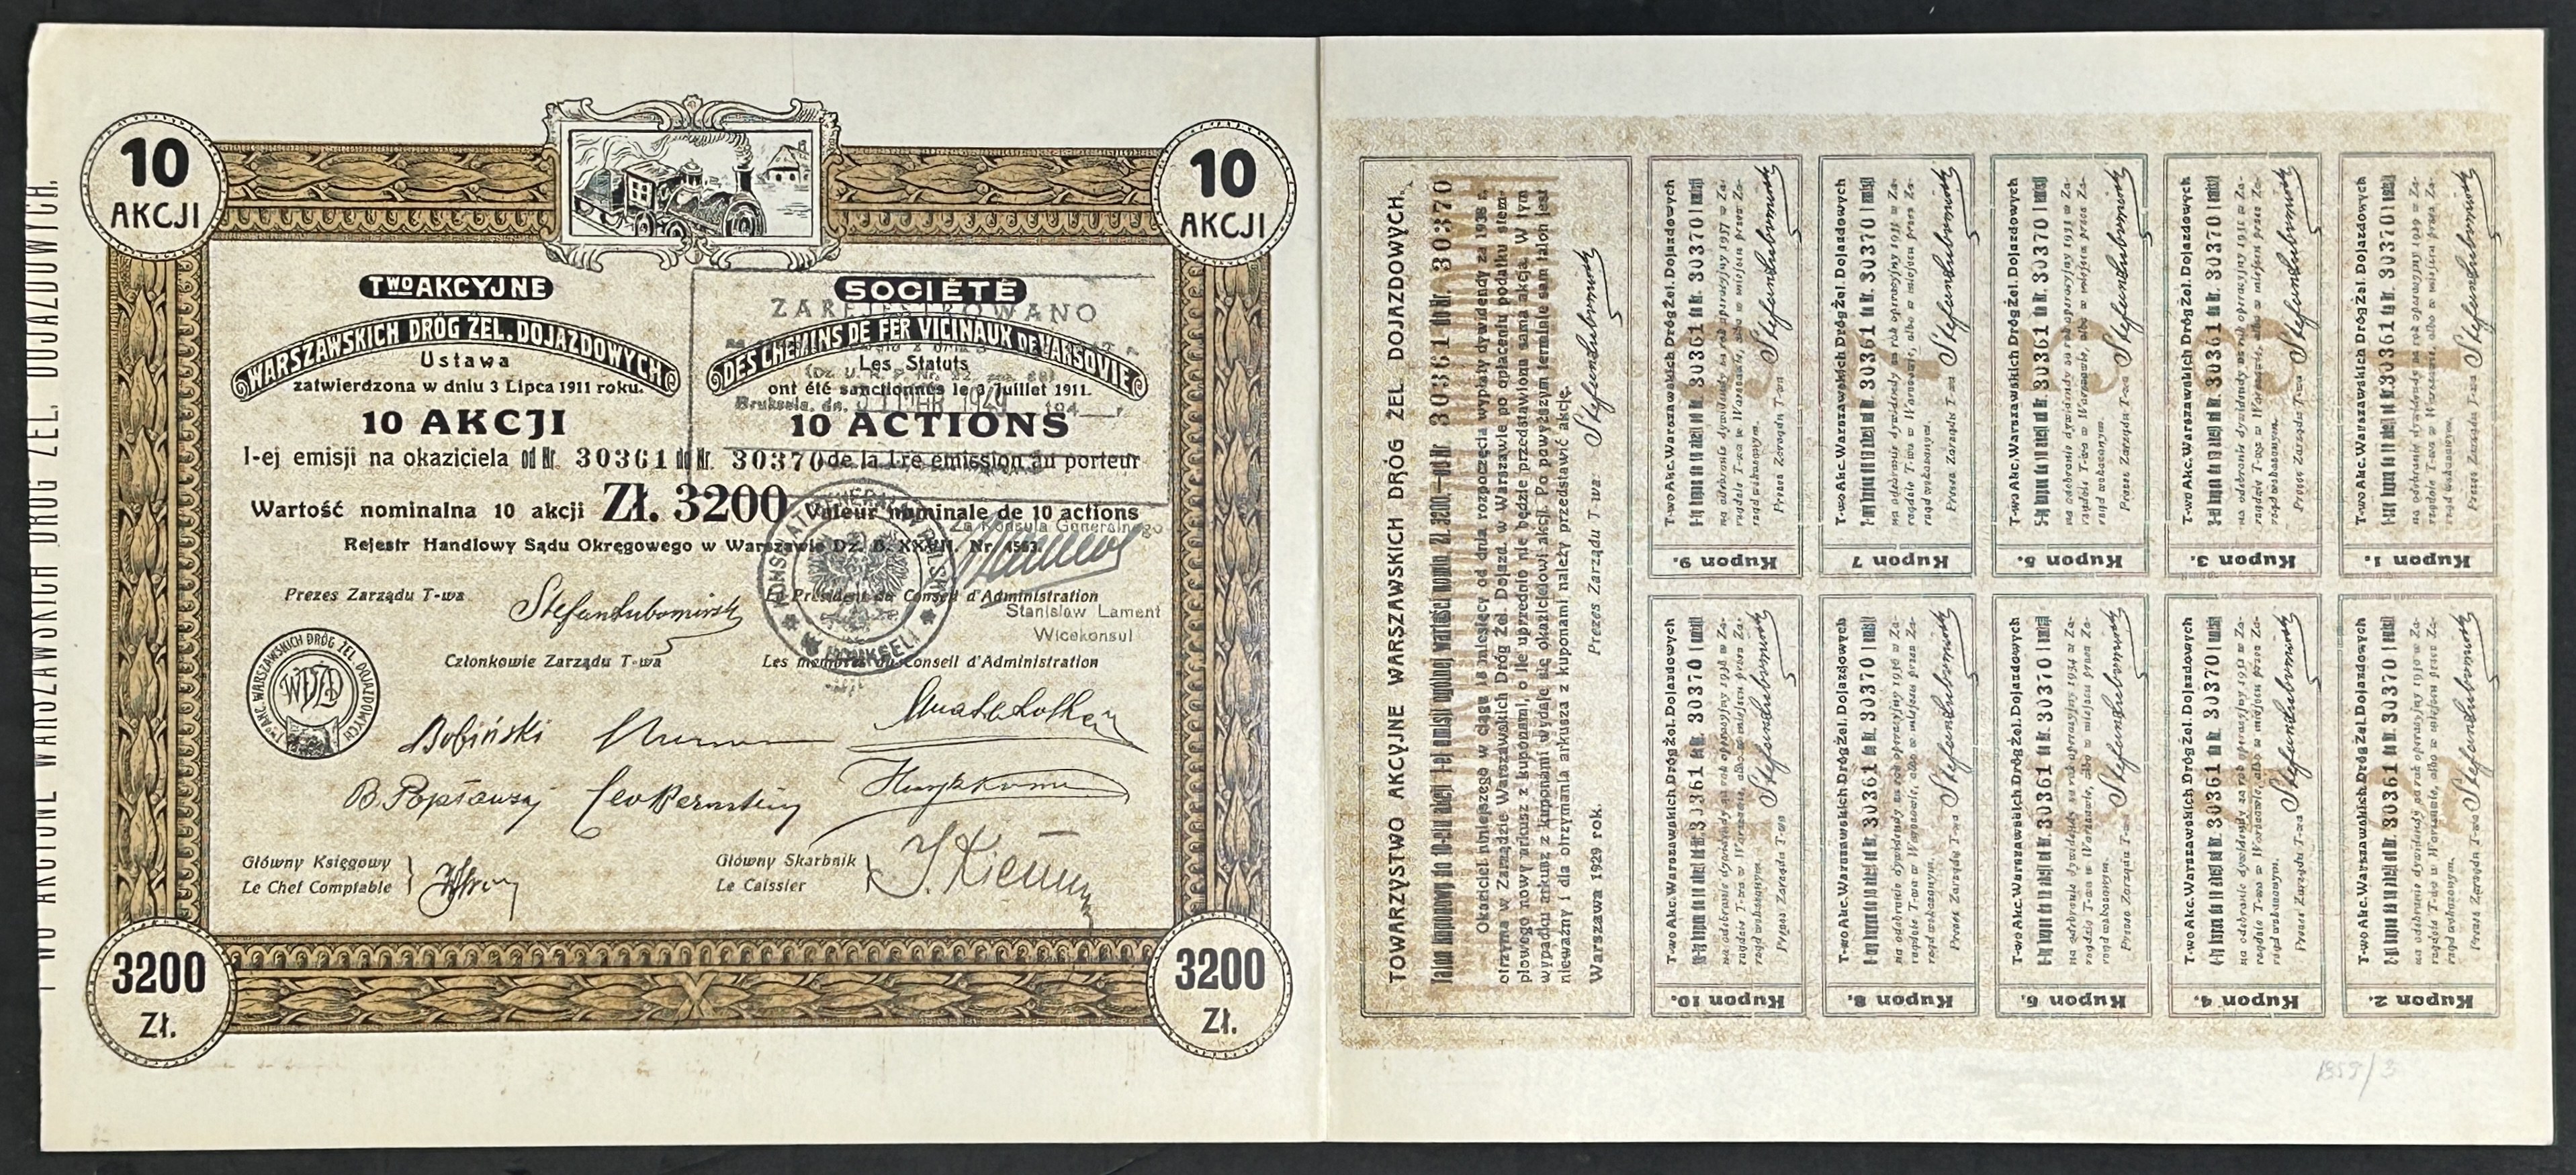 T-WO AKCYJNE WARSZAWSKICH DRÓG ŻEL. DOJAZDOWYCH.
10
AKCJI
10
AKCJI
TWO AKCYJNE
WARSZAWSKICH DRÓG ŻEL. DOJAZDOWYCH
Ustawa
zatwierdzona w dniu 3 Lipca 1911 roku.
10 AKCJI
SOCIÉTÉ
DES CHEMINS DE FER VICINAUX DE VARSOVIE
Les Statuts
ont été sanctionnés le 3 Juillet 1911.
10 ACTIONS
ZAREJESTROWANO
Bruksela, dn. 1949 194 r.
I-ej emisji na okaziciela od Nr. 30361 do Nr. 30370 de la I-re emission au porteur
Wartość nominalna 10 akcji Zł. 3200 Valeur nominale de 10 actions
Rejestr Handlowy Sądu Okręgowego w Warszawie Dz. B. XXVII. Nr. 4563.
Za Konsula Generalnego
Stanisław Lament
Wicekonsul
KONSULAT GENERALNY POLSKI
W BRUKSELI
Prezes Zarządu T-wa
Stefan Lubomirski
Le Président du Conseil d'Administration
Członkowie Zarządu T-wa
Les membres du Conseil d'Administration
TWO AKC. WARSZAWSKICH DRÓG ŻEL. DOJAZDOWYCH
WDŻD
Bobiński
Główny Księgowy
Le Chef Comptable
Główny Skarbnik
Le Caissier
3200
Zł.
3200
Zł.
TOWARZYSTWO AKCYJNE WARSZAWSKICH DRÓG ŻEL. DOJAZDOWYCH.
Talon kuponowy do 10-ciu akcji I-ej emisji ogólnej wartości nomin. Zł. 3200.— od Nr. 30361 do Nr. 30370
Okaziciel niniejszego w ciągu 18 miesięcy od dnia rozpoczęcia wypłaty dywidendy za 1938 r.
otrzyma w Zarządzie Warszawskich Dróg Żel. Dojazd. w Warszawie po opłaceniu podatku stem-
plowego nowy arkusz z kuponami, o ile uprzednio nie będzie przedstawiona sama akcja. W tym
wypadku arkusz z kuponami wydaje się okazicielowi akcji. Po powyższym terminie sam talon jest
nieważny i dla otrzymania arkusza z kuponami należy przedstawić akcję.
Warszawa 1929 rok. Prezes Zarządu T-wa: Stefan Lubomirski
T-wo Akc. Warszawskich Dróg Żel. Dojazdowych
30361 do Nr. 30370
na odebranie dywidendy za rok operacyjny 1937 w Za-
rządzie T-wa w Warszawie, albo w miejscu przez Za-
rząd wskazanym.
Prezes Zarządu T-wa Stefan Lubomirski
Kupon 9.
T-wo Akc. Warszawskich Dróg Żel. Dojazdowych
30361 do Nr. 30370
na odebranie dywidendy za rok operacyjny 1935 w Za-
rządzie T-wa w Warszawie, albo w miejscu przez Za-
rząd wskazanym.
Prezes Zarządu T-wa Stefan Lubomirski
Kupon 7
T-wo Akc. Warszawskich Dróg Żel. Dojazdowych
30361 do Nr. 30370
na odebranie dywidendy za rok operacyjny 1933 w Za-
rządzie T-wa w Warszawie, albo w miejscu przez Za-
rząd wskazanym.
Prezes Zarządu T-wa Stefan Lubomirski
Kupon 5.
T-wo Akc. Warszawskich Dróg Żel. Dojazdowych
30361 do Nr. 30370
na odebranie dywidendy za rok operacyjny 1931 w Za-
rządzie T-wa w Warszawie, albo w miejscu przez Za-
rząd wskazanym.
Prezes Zarządu T-wa Stefan Lubomirski
Kupon 3.
T-wo Akc. Warszawskich Dróg Żel. Dojazdowych
30361 do Nr. 30370
na odebranie dywidendy za rok operacyjny 1929 w Za-
rządzie T-wa w Warszawie, albo w miejscu przez Za-
rząd wskazanym.
Prezes Zarządu T-wa Stefan Lubomirski
Kupon 1.
T-wo Akc. Warszawskich Dróg Żel. Dojazdowych
30361 do Nr. 30370
na odebranie dywidendy za rok operacyjny 1938 w Za-
rządzie T-wa w Warszawie, albo w miejscu przez Za-
rząd wskazanym.
Prezes Zarządu T-wa Stefan Lubomirski
Kupon 10.
T-wo Akc. Warszawskich Dróg Żel. Dojazdowych
30361 do Nr. 30370
na odebranie dywidendy za rok operacyjny 1936 w Za-
rządzie T-wa w Warszawie, albo w miejscu przez Za-
rząd wskazanym.
Prezes Zarządu T-wa Stefan Lubomirski
Kupon 8.
T-wo Akc. Warszawskich Dróg Żel. Dojazdowych
30361 do Nr. 30370
na odebranie dywidendy za rok operacyjny 1934 w Za-
rządzie T-wa w Warszawie, albo w miejscu przez Za-
rząd wskazanym.
Prezes Zarządu T-wa Stefan Lubomirski
Kupon 6.
T-wo Akc. Warszawskich Dróg Żel. Dojazdowych
30361 do Nr. 30370
na odebranie dywidendy za rok operacyjny 1932 w Za-
rządzie T-wa w Warszawie, albo w miejscu przez Za-
rząd wskazanym.
Prezes Zarządu T-wa Stefan Lubomirski
Kupon 4.
T-wo Akc. Warszawskich Dróg Żel. Dojazdowych
30361 do Nr. 30370
na odebranie dywidendy za rok operacyjny 1930 w Za-
rządzie T-wa w Warszawie, albo w miejscu przez Za-
rząd wskazanym.
Prezes Zarządu T-wa Stefan Lubomirski
Kupon 2.